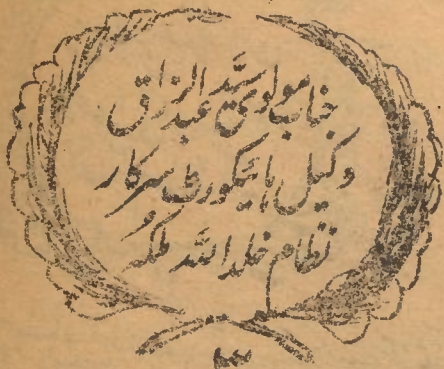 جناب مولوی سید عبدالرزاق
وکیل ہائیکورٹ سرکار
نظام خلد اللہ ملکہ